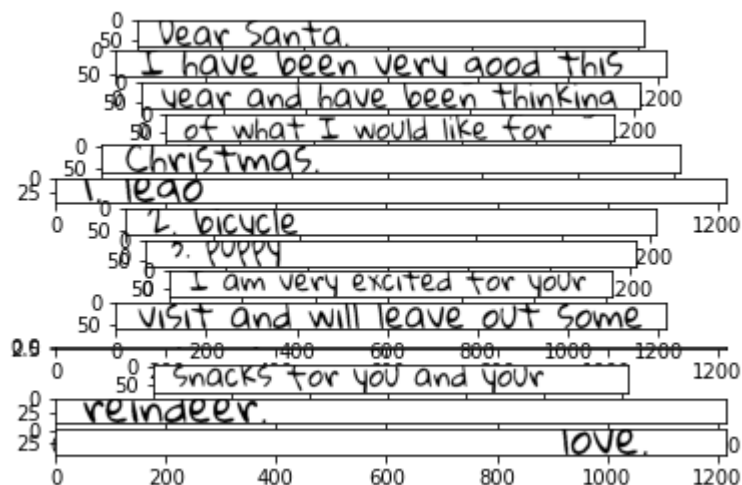 Dear Santa.
I have been very good this
year and have been thinking
of what I would like for
Christmas.
1. lego
2. bicycle
3. puppy
I am very excited for your
visit and will leave out some
snacks for you and your
reindeer.
love.